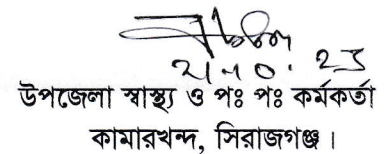 উপজেলা স্বাস্থ্য ও পঃ পঃ কর্মকর্তা
কামারখন্দ, সিরাজগঞ্জ।